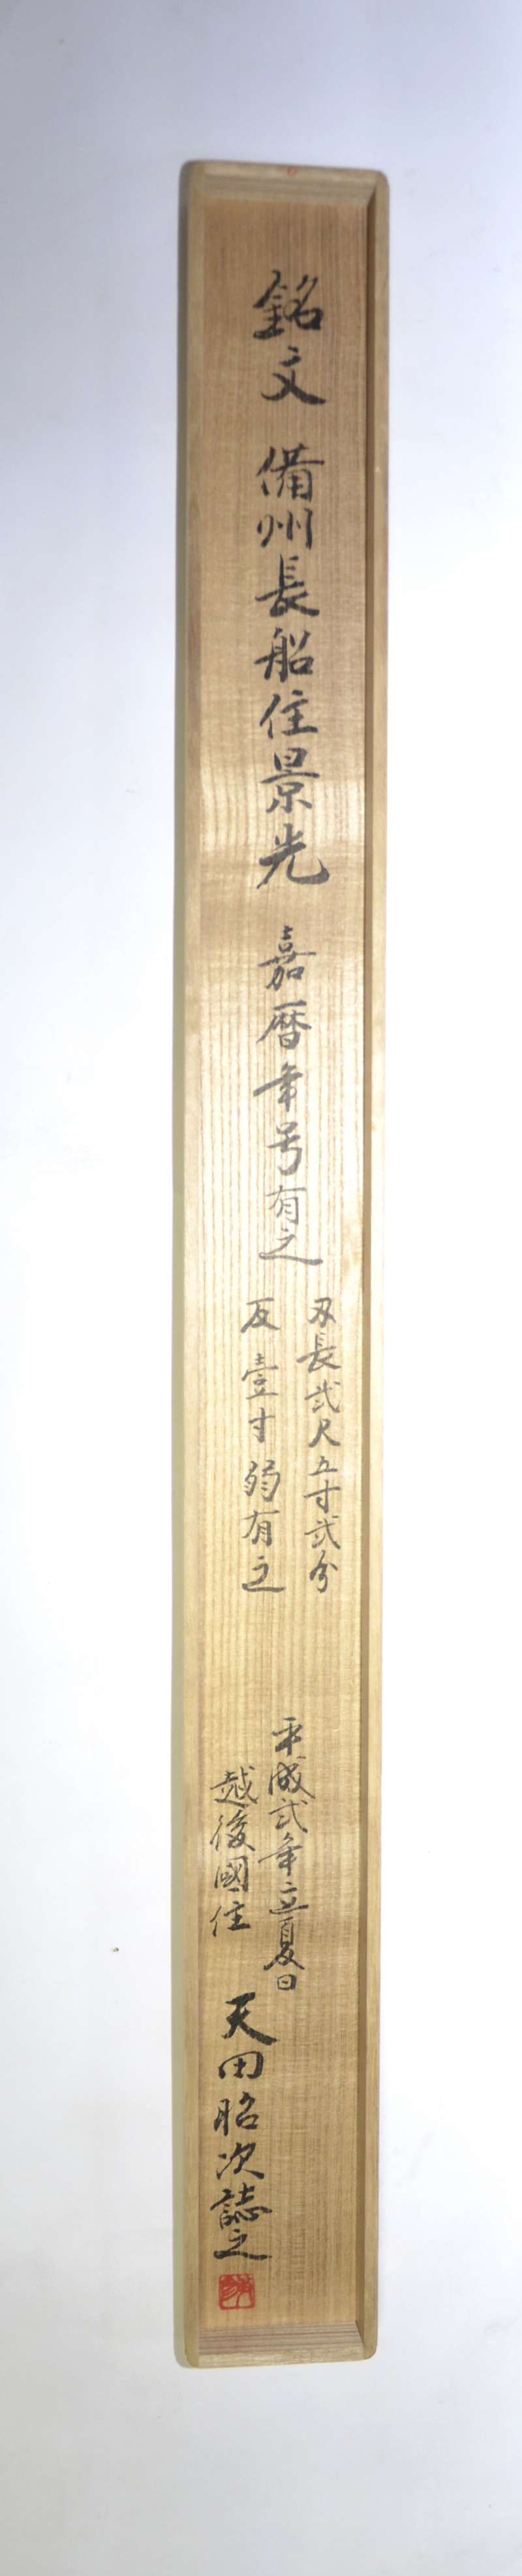 銘文 備州長船住景光 嘉暦年号有之
刃長弐尺五寸弐分
反 壹寸弱有之
平成弐年立夏日
越後國住
天田昭次誌之